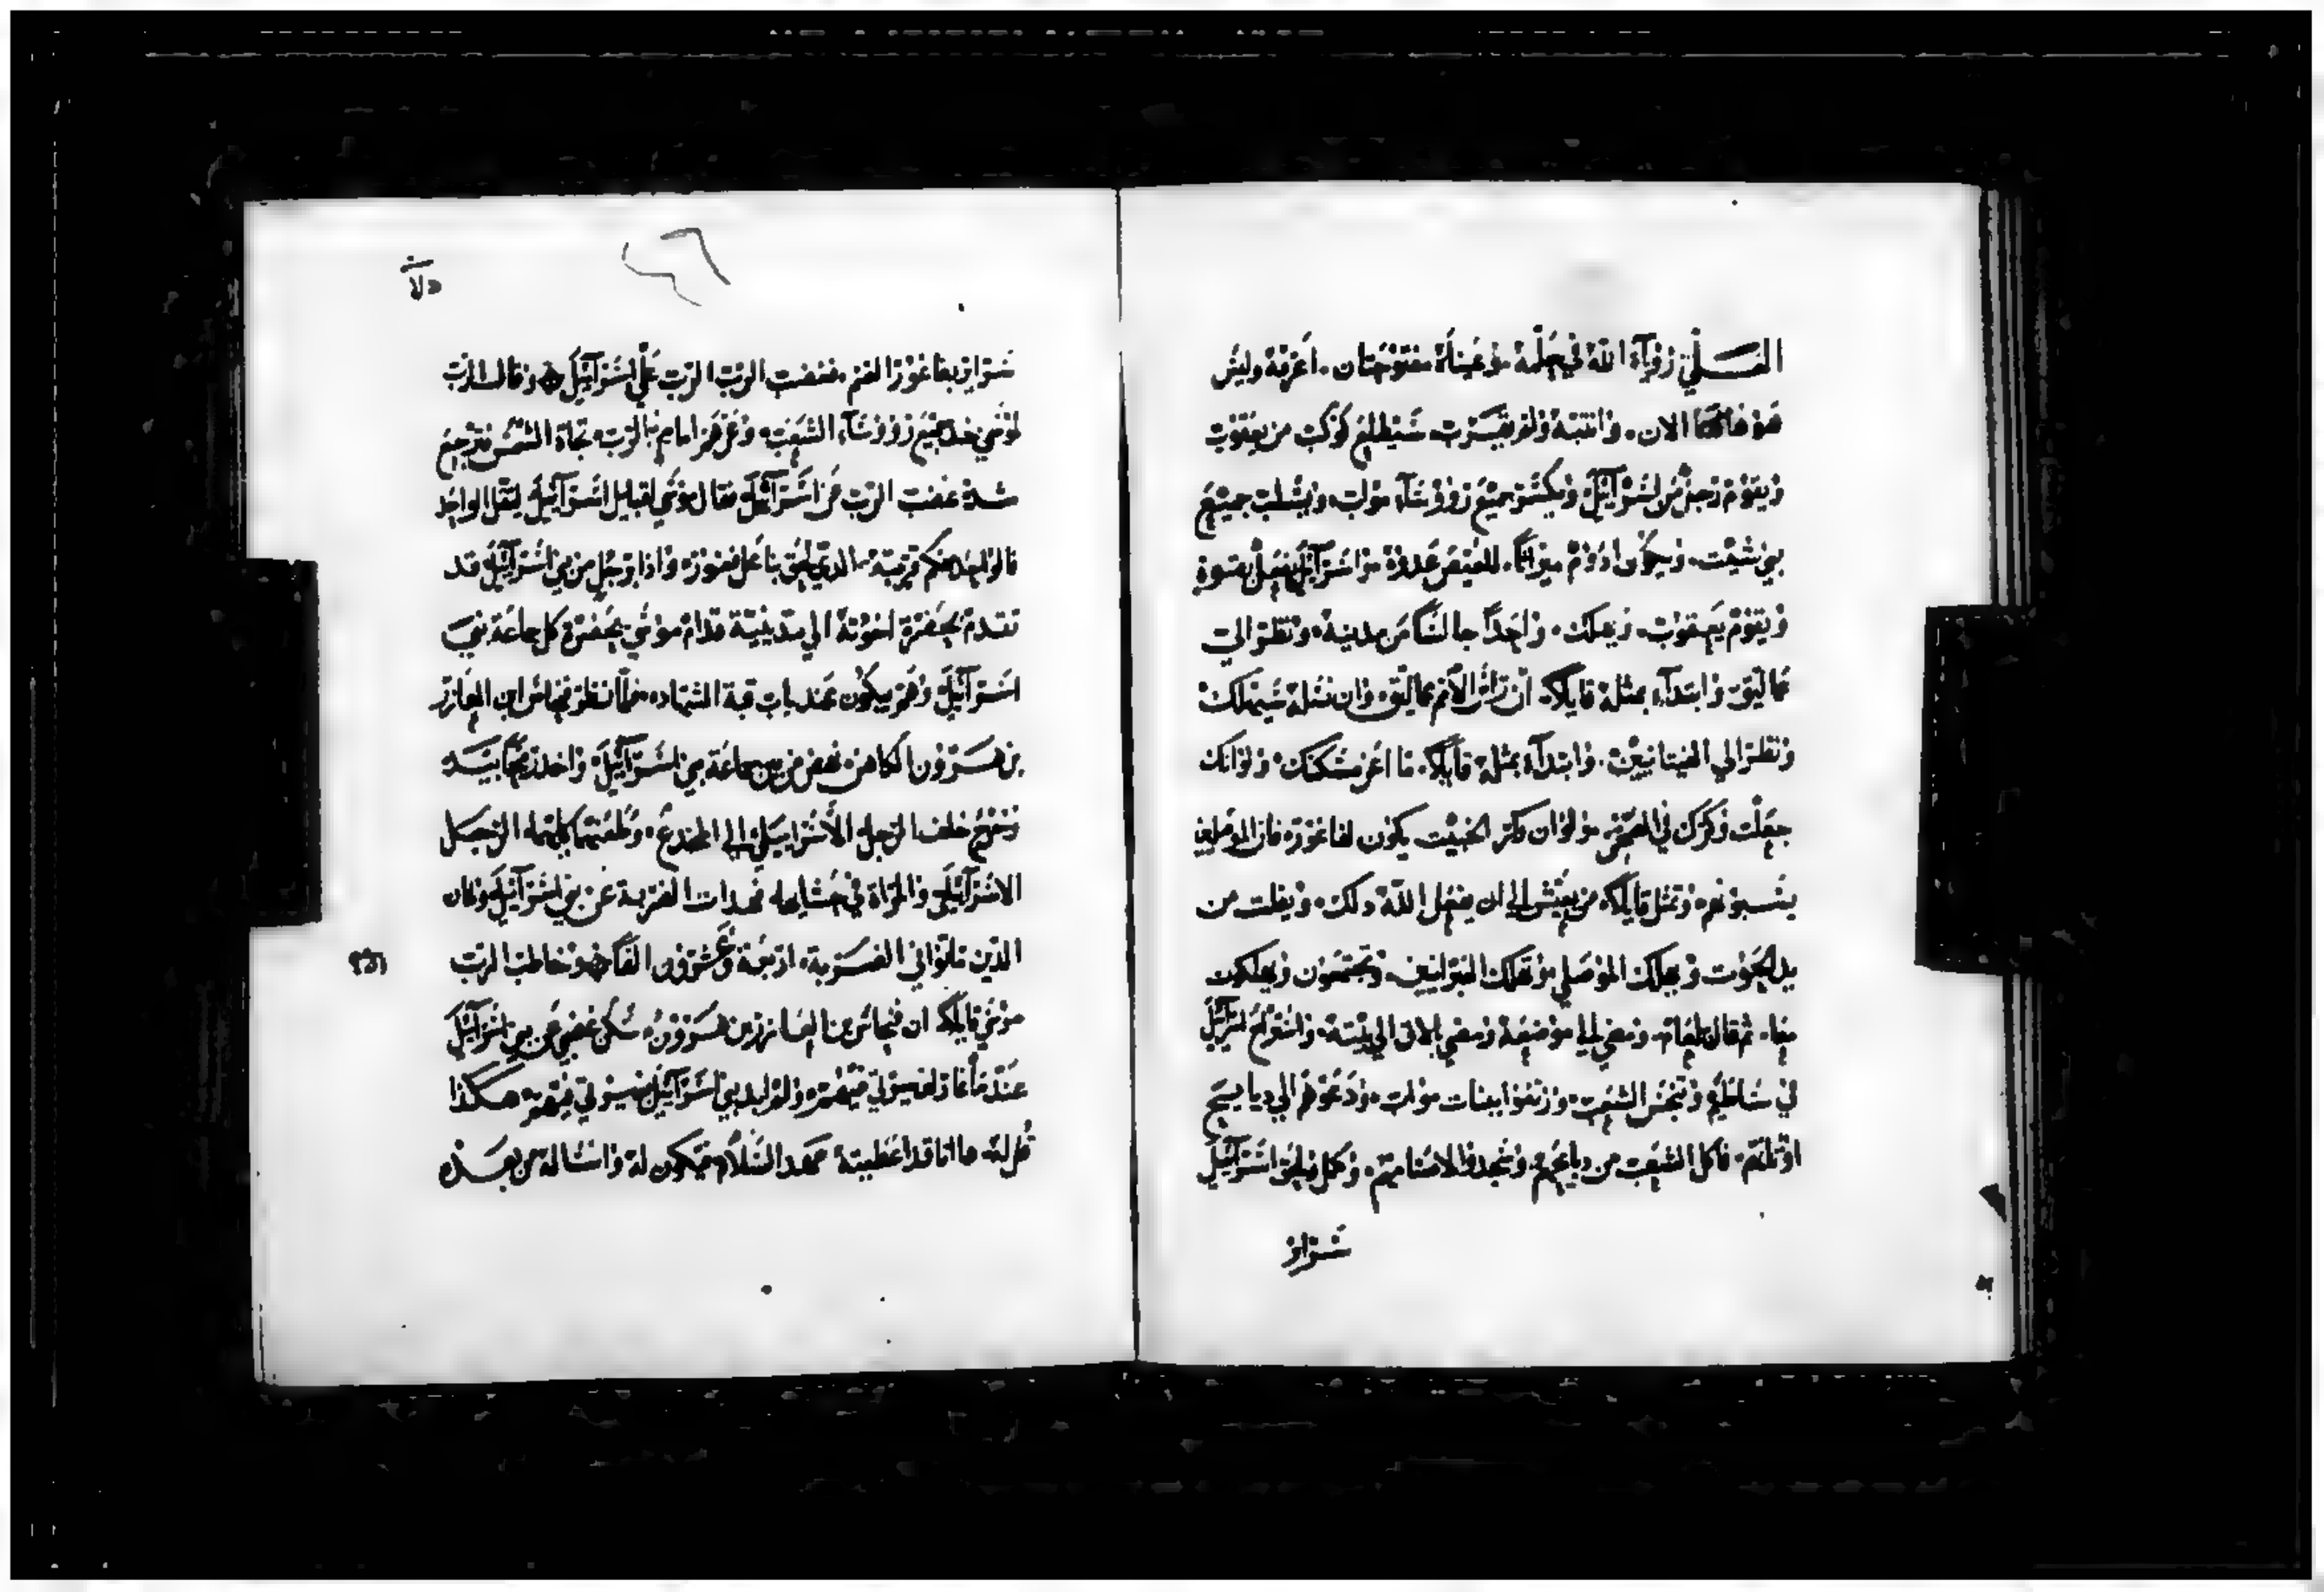 العلي رؤيآء الله في حلمه وعيناه مفتوحتان. اعرفه وليس
هو هاهنا الان. وانتبه ولم يقترب. سيطلع كوكب من يعقوب
ويقوم رجل من اسرآئيل ويكسر جميع رووسآء مواب. ويسلب جميع
بني شيت. ويكون ادوم ميراثاً. للعيص عدوه واسرآئيل يعمل بقوة
ويقوم يعقوب. ويهلك. واحداً جالساً من مدينة. ونظر الي
عماليق وابتدآء بمثله قايلاً. ان راس الامم عماليق. وان نسله سيهلك
ونظر الي القينانيين. وابتدآء بمثله قايلاً. ما اعز مسكنك. ولو انك
جعلت وكرك في الصخر ولو ان وكر الخبيث يكون لفاغور. فان الموصليين
يسبونهم. وتمثل قايلاً. من يعيش الي ان يفعل الله دلك. ويفلت من
يد الحوت ويهلك الموصلي وتهلك العبرانيين. ويجتمعون ويهلكون
معا. ثم قام بلعام. ومضي الي موضعه ومضي بالاق الي بيته. واستراح اسرآئيل
في ساطيم وتنجس الشعب. وزنوا ببنات مواب. ودعوهم الي دبايح
اوثانهم. فاكل الشعب من دبايحهم. وسجدوا لاصنامهم. وكمل اسرآئيل
سرايره
دلآ
٤٦
سرايره بفاغور الصنم. فغضب الرب علي اسرآئيل وقال الرب
لموسي خد جميع رووسآء الشعب. وعزرهم امام الرب. تجاه الشمس فترجع
شدة غضب الرب من اسرآئيل فقال موسي لقبايل اسرآئيل ليقتل الواحد
قالواحد منكم قريبه. الدي لحق بناعل فغور. وادا رجل من بني اسرآئيل قد
تقدم بحضرة اخوته الي مدينية قدام موسي بحضرة كل جماعة بني
اسرآئيل وهم يبكون عند باب قبة الشهاده. فلما نظر فنحاس ابن العازر
بن هرون الكاهن. نهض من بين جماعة بني اسرآئيل. واخد رمحاً بيده
وخرج خلف الرجل الاسراييلي الي المخدع. وطعنهما كليهما. الرجل
الاسرآئيلي والمراة في حشايها. فهدات الضربة عن بني اسرآئيل وكان
الدين ماتوا في الضربة. اربعة وعشرون الفاً وخاطب الرب
موسي قايلاً. ان فنحاس بن العازر بن هرون. سكن غضبي عن بني اسرآئيل
عندما غار لغيرتي فيهم. ولم ابد بني اسرآئيل بغيرتي فيهم. هكذا
قل له. ها انا قد اعطيته عهد السلام فيكون له وانساله من بعده